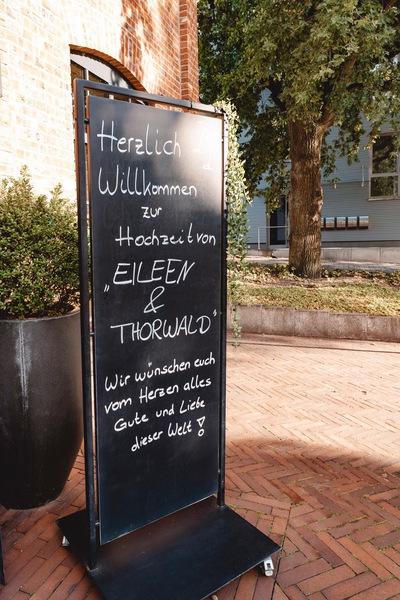 Herzlich
Willkommen
zur
Hochzeit von
„EILEEN
&
THORWALD"
Wir wünschen euch
vom Herzen alles
Gute und Liebe
dieser Welt!